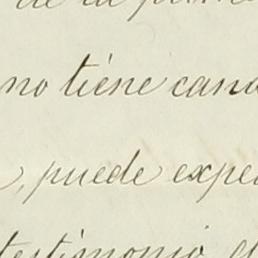 de la prime
no tiene cano
, puede expe
testimonio el